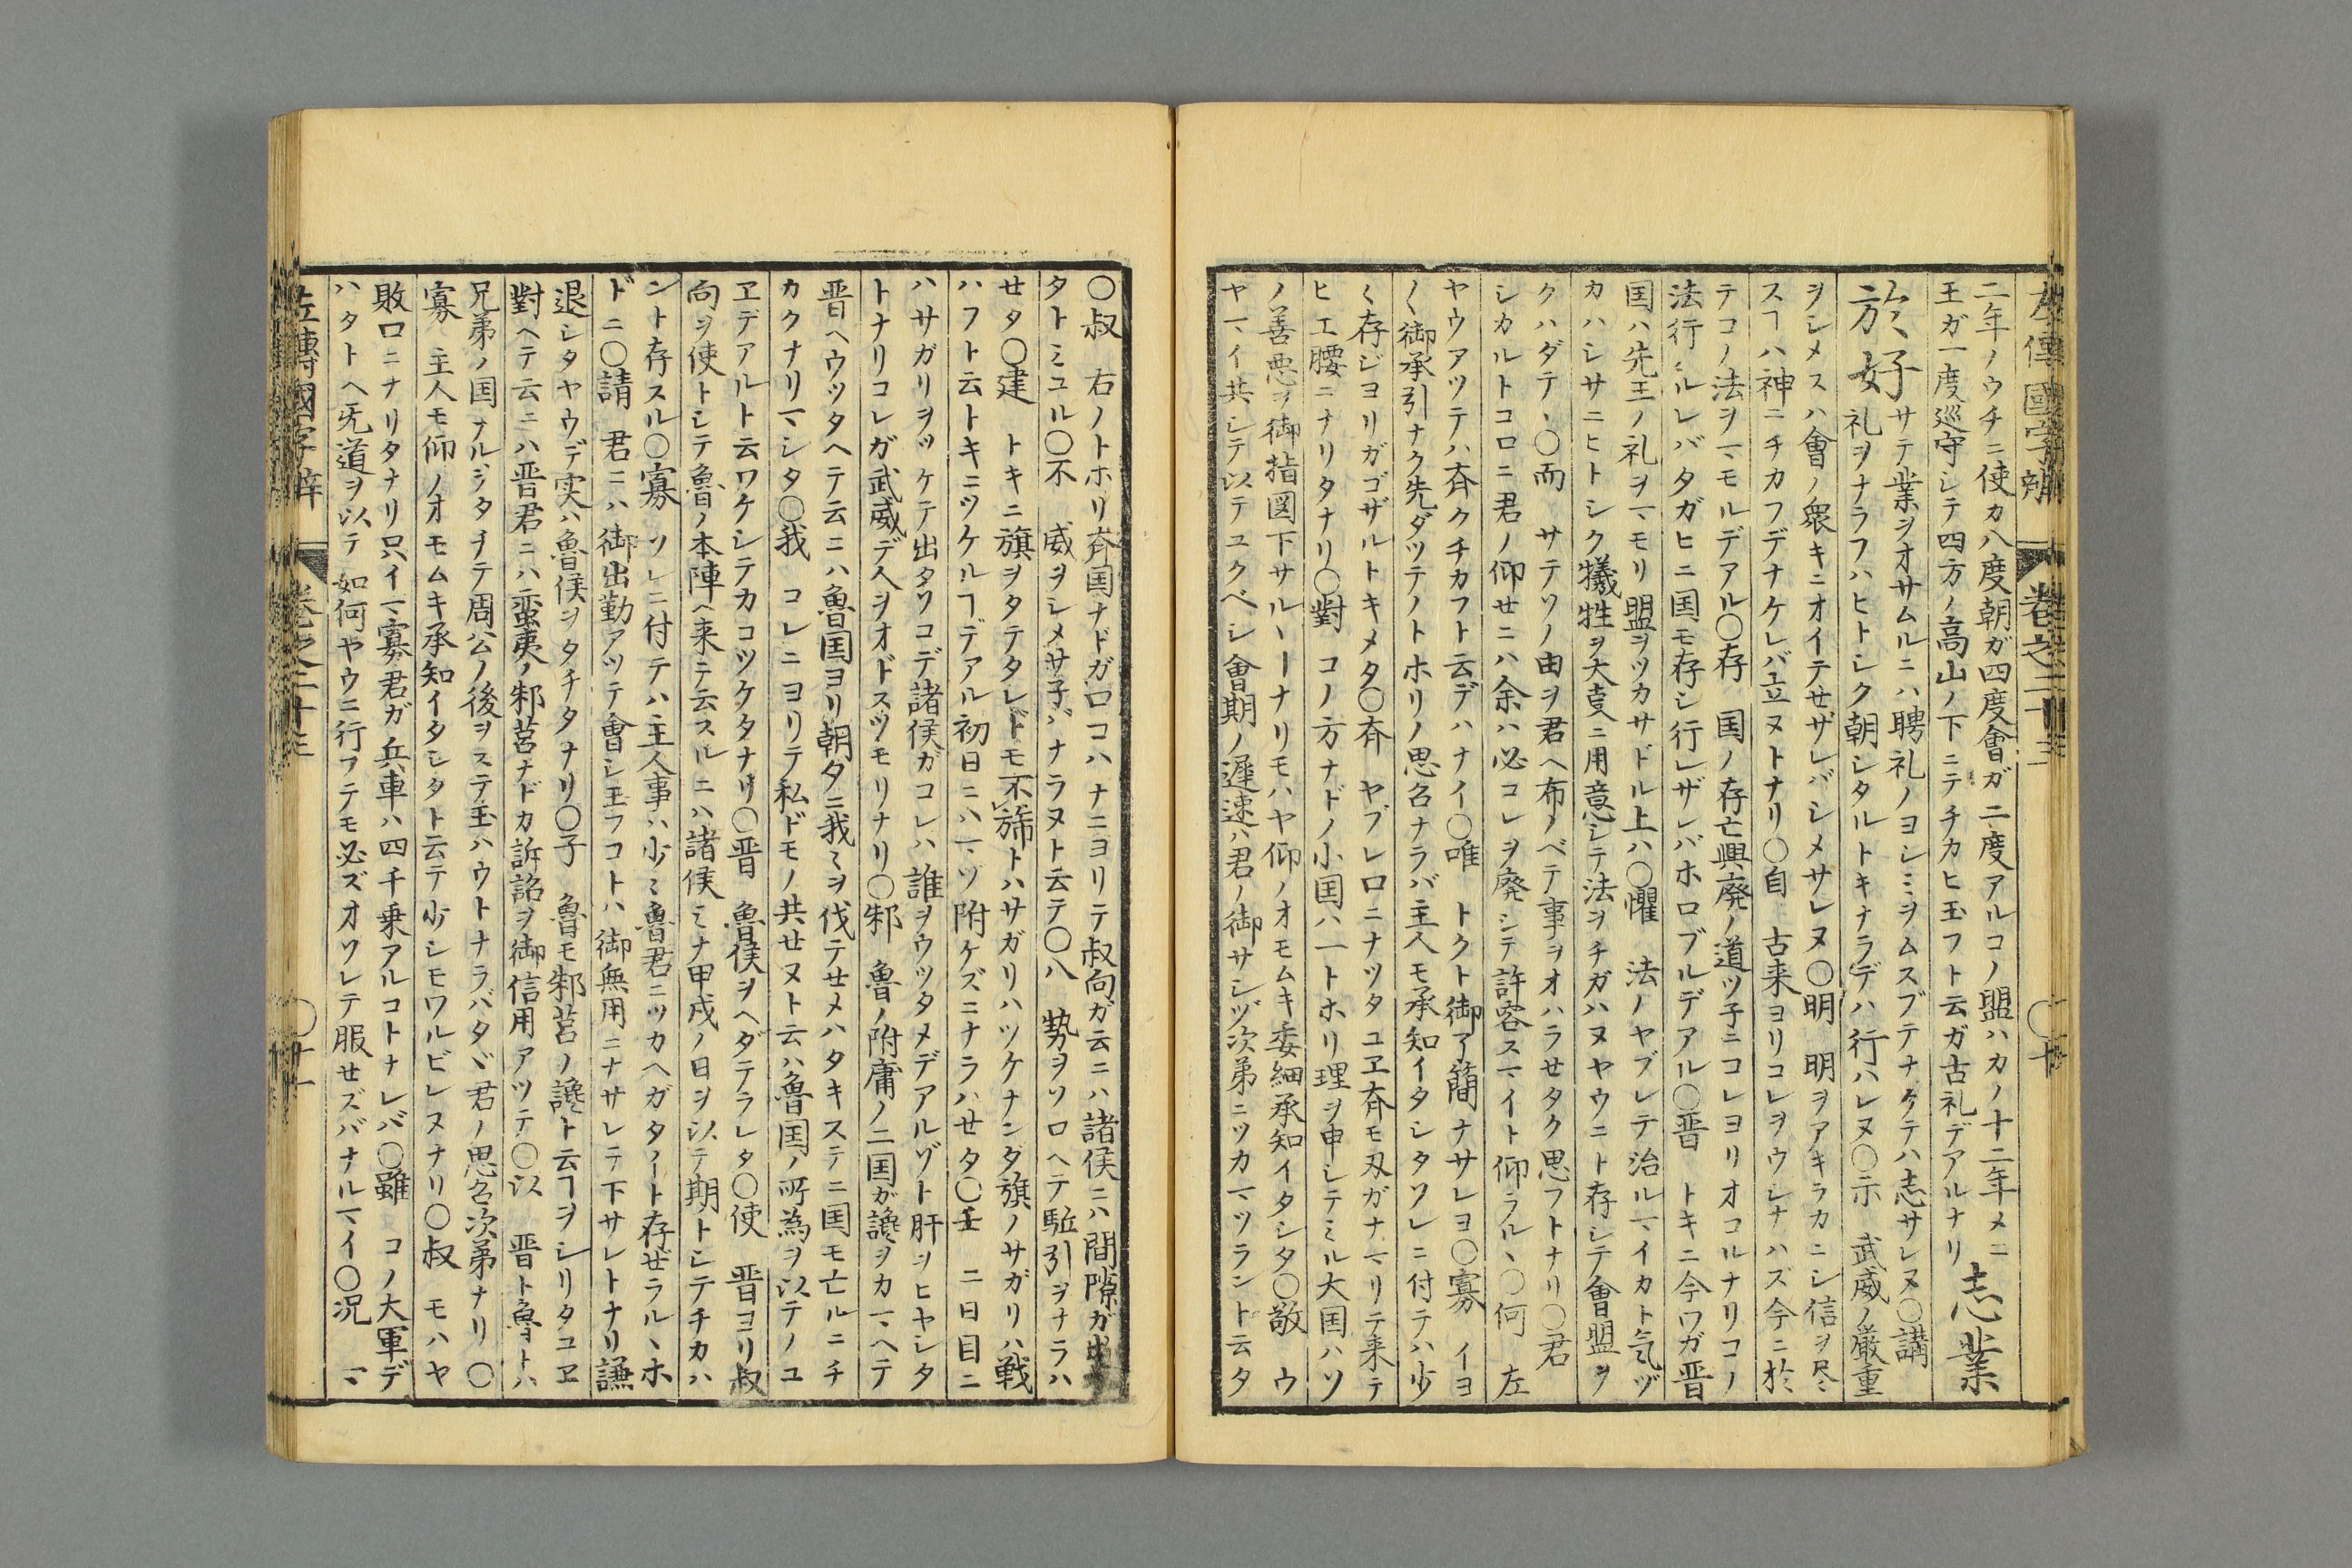 左傳國字辨 巻之二十三 〇十
二年ノウチニ使カ八度朝ガ四度會ガ二度アルコノ盟ハカノ十二年メニ
王ガ一度巡守シテ四方ノ高山ノ下ニテチカヒ玉フト云ガ古礼デアルナリ 志業
於好 サテ業ヲオサムルニハ聘礼ノヨシミヲムスブテナクテハ志サレヌ〇講
礼ヲナラフハヒトシク朝シタルトキナラデハ行ハレヌ〇示 武威ノ厳重
ヲシメスハ會ノ衆キニオイテせザレバシメサレヌ〇明 明ヲアキラカニシ信ヲ尽ミ
スヿハ神ニチカフデナケレバ立ヌトナリ〇自 古来ヨリコレヲウシナハズ今ニ於ミ
テコノ法ヲマモルデアル〇存 国ノ存亡興廃ノ道ツ子ニコレヨリオコルナリコノ
法行ミルレバタガヒニ国モ存シ行レザレバホロブルデアル〇晋 トキニ今ワガ晋
国ハ先王ノ礼ヲマモリ盟ヲツカサドル上ハ〇懼 法ノヤブレテ治ルマイカト気ヅ
カハシサニヒトシク犠牲ヲ大夏ニ用意シテ法ヲチガハヌヤウニト存シテ會盟ヲ
クハダテヽ〇而 サテソノ由ヲ君ヘ布ノベテ事ヲオハラせタク思フトナリ〇君
シカルトコロニ君ノ仰せニハ余ハ必コレヲ廃シテ許容スマイト仰ラルヽ〇何 左
ヤウアツテハ斉クチカフト云デハナイ〇唯 トクト御了簡ナサレヨ〇寡 イヨ
〱御承引ナク先ダツテノトホリノ思召ナラバ主人モ承知イタシタソレニ付テハ少
ミ存ジヨリガゴザルトキメタ〇斉 ヤブレ口ニナツタユヱ斉モ刄ガナマリテ来テ
ヒエ腰ニナリタナリ〇對 コノ方ナドノ小国ハ一トホリ理ヲ申シテミル大国ハソ
ノ善悪ヲ御指図下サルヽーナリモハヤ仰ノオモムキ委細承知イタシタ〇敬 ウ
ヤマイ共シテ以テユクベシ會期ノ遅速ハ君ノ御サシヅ次第ニツカマツラント云タ
〇叔 右ノトホリ斉国ナドガ口コハナニヨリテ叔向ガ云ニハ諸侯ニハ間隙ガ出
タトミユル〇不 威ヲシメサ子バナラヌト云テ〇八 勢ヲソロヘテ駈引ヲナラハ
せタ〇建 トキニ旗ヲタテタレドモ不旆トハサガリハツケナンダ旗ノサガリハ戦
ハフト云トキニツケルヿデアル初日ニハマヅ附ケズニナラハせタ〇壬 二日目ニ
ハサガリヲツケテ出タソコデ諸侯ガコレハ誰ヲウツタメデアルゾト肝ヲヒヤシタ
トナリコレガ武威デ人ヲオドスツモリナリ〇邾 魯ノ附庸ノ二国ガ讒ヲカマヘテ
晋ヘウツタヘテ云ニハ魯国ヨリ朝夕ニ我ミヲ伐テせメハタキステニ国モ亡ルニチ
カクナリマシタ〇我 コレニヨリテ私ドモノ共せヌト云ハ魯国ノ所為ヲ以テノコ
ヱデアルト云ワケシテカコツケタナリ〇晋 魯侯ヲヘダテラレタ〇使 晋ヨリ叔
向ヲ使トシテ魯ノ本陣ヘ来ニテ云スルニハ諸侯ミナ甲戌ノ日ヲ以テ期トシテチカハ
ント存スル〇寡 ソレニ付テハ主人事ハ少ミ魯君ニツカヘガタイト存ぜラルヽホ
ドニ〇請 君ニハ御出勤アツテ會シ玉フコトハ御無用ニナサレテ下サレトナリ謙
退シタヤウデ実ハ魯侯ヲタチタナリ〇子 魯モ邾莒ノ讒ト云ヿヲシリタユヱ
對ヘテ云ニハ晋君ニハ蛮夷ノ邾莒ナドカ訴訟ヲ御信用アツテ〇以 晋ト魯トハ
兄弟ノ国ナルシタチテ周公ノ後ヲステ玉ハウトナラバタヾ君ノ思召次第ナリ〇
寡 主人モ仰ノオモムキ承知イタシタト云テ少シモワルビレヌナリ〇叔 モハヤ
敗口ニナリタナリ只イマ寡君ガ兵車ハ四千乗アルコトナレバ〇雖 コノ大軍デ
ハタトヘ旡道ヲ以テ如何ヤウニ行フテモ必ズオソレテ服せズバナルマイ〇况 マ
左傳國字辨 巻之二十三 〇十一